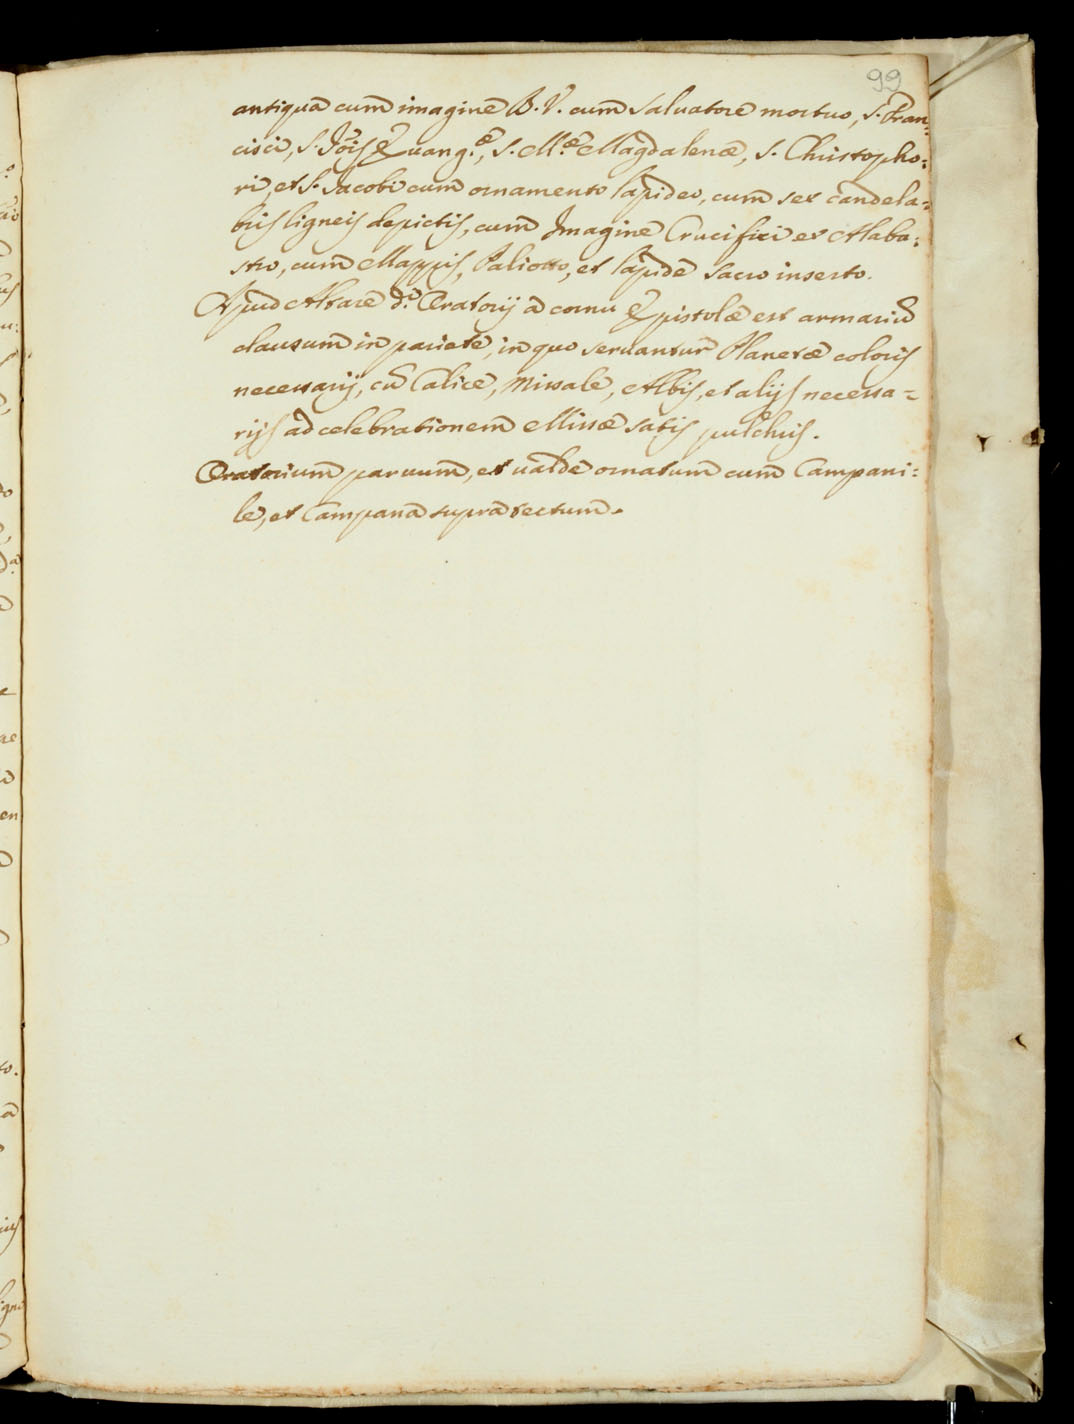 99
antiqua cum imagine B. V. cum Salvatore mortuo, S. Fran:
cisci, S. Jõis Euang.æ, S. M.æ Magdalenæ, S. Christopho:
ri, et S. Jacobi cum ornamento lapideo, cum sex candela:
bris ligneis depictis, cum Imagine Crucifixi ex Alaba:
stro, cum Mappis, Paliotto, et lapide sacro inserto.
Apud Altare d.i Oratorij a cornu Epistolæ est armariũ
clausum in pariete, in quo seruantur Planetæ coloris
necessarij, cũ Calice, Missale, Albis, et alijs necessa=
rijs ad celebrationem Missæ satis pulchris.
Oratorium paruum, et ualde ornatum cum Campani:
le, et Campana supra tectum.